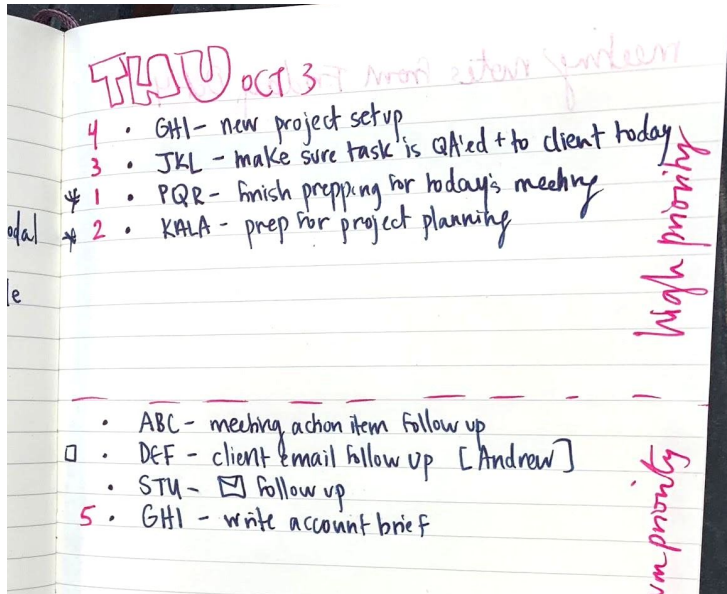 THU OCT 3
4 • GHI - new project setup
3 • JKL - make sure task is QA'ed + to client today
* 1 • PQR - finish prepping for today's meeting
* 2 • KALA - prep for project planning
high priority
• ABC - meeting action item follow up
□ • DEF - client email follow up [Andrew]
• STU - ✉ follow up
5 • GHI - write account brief
priority